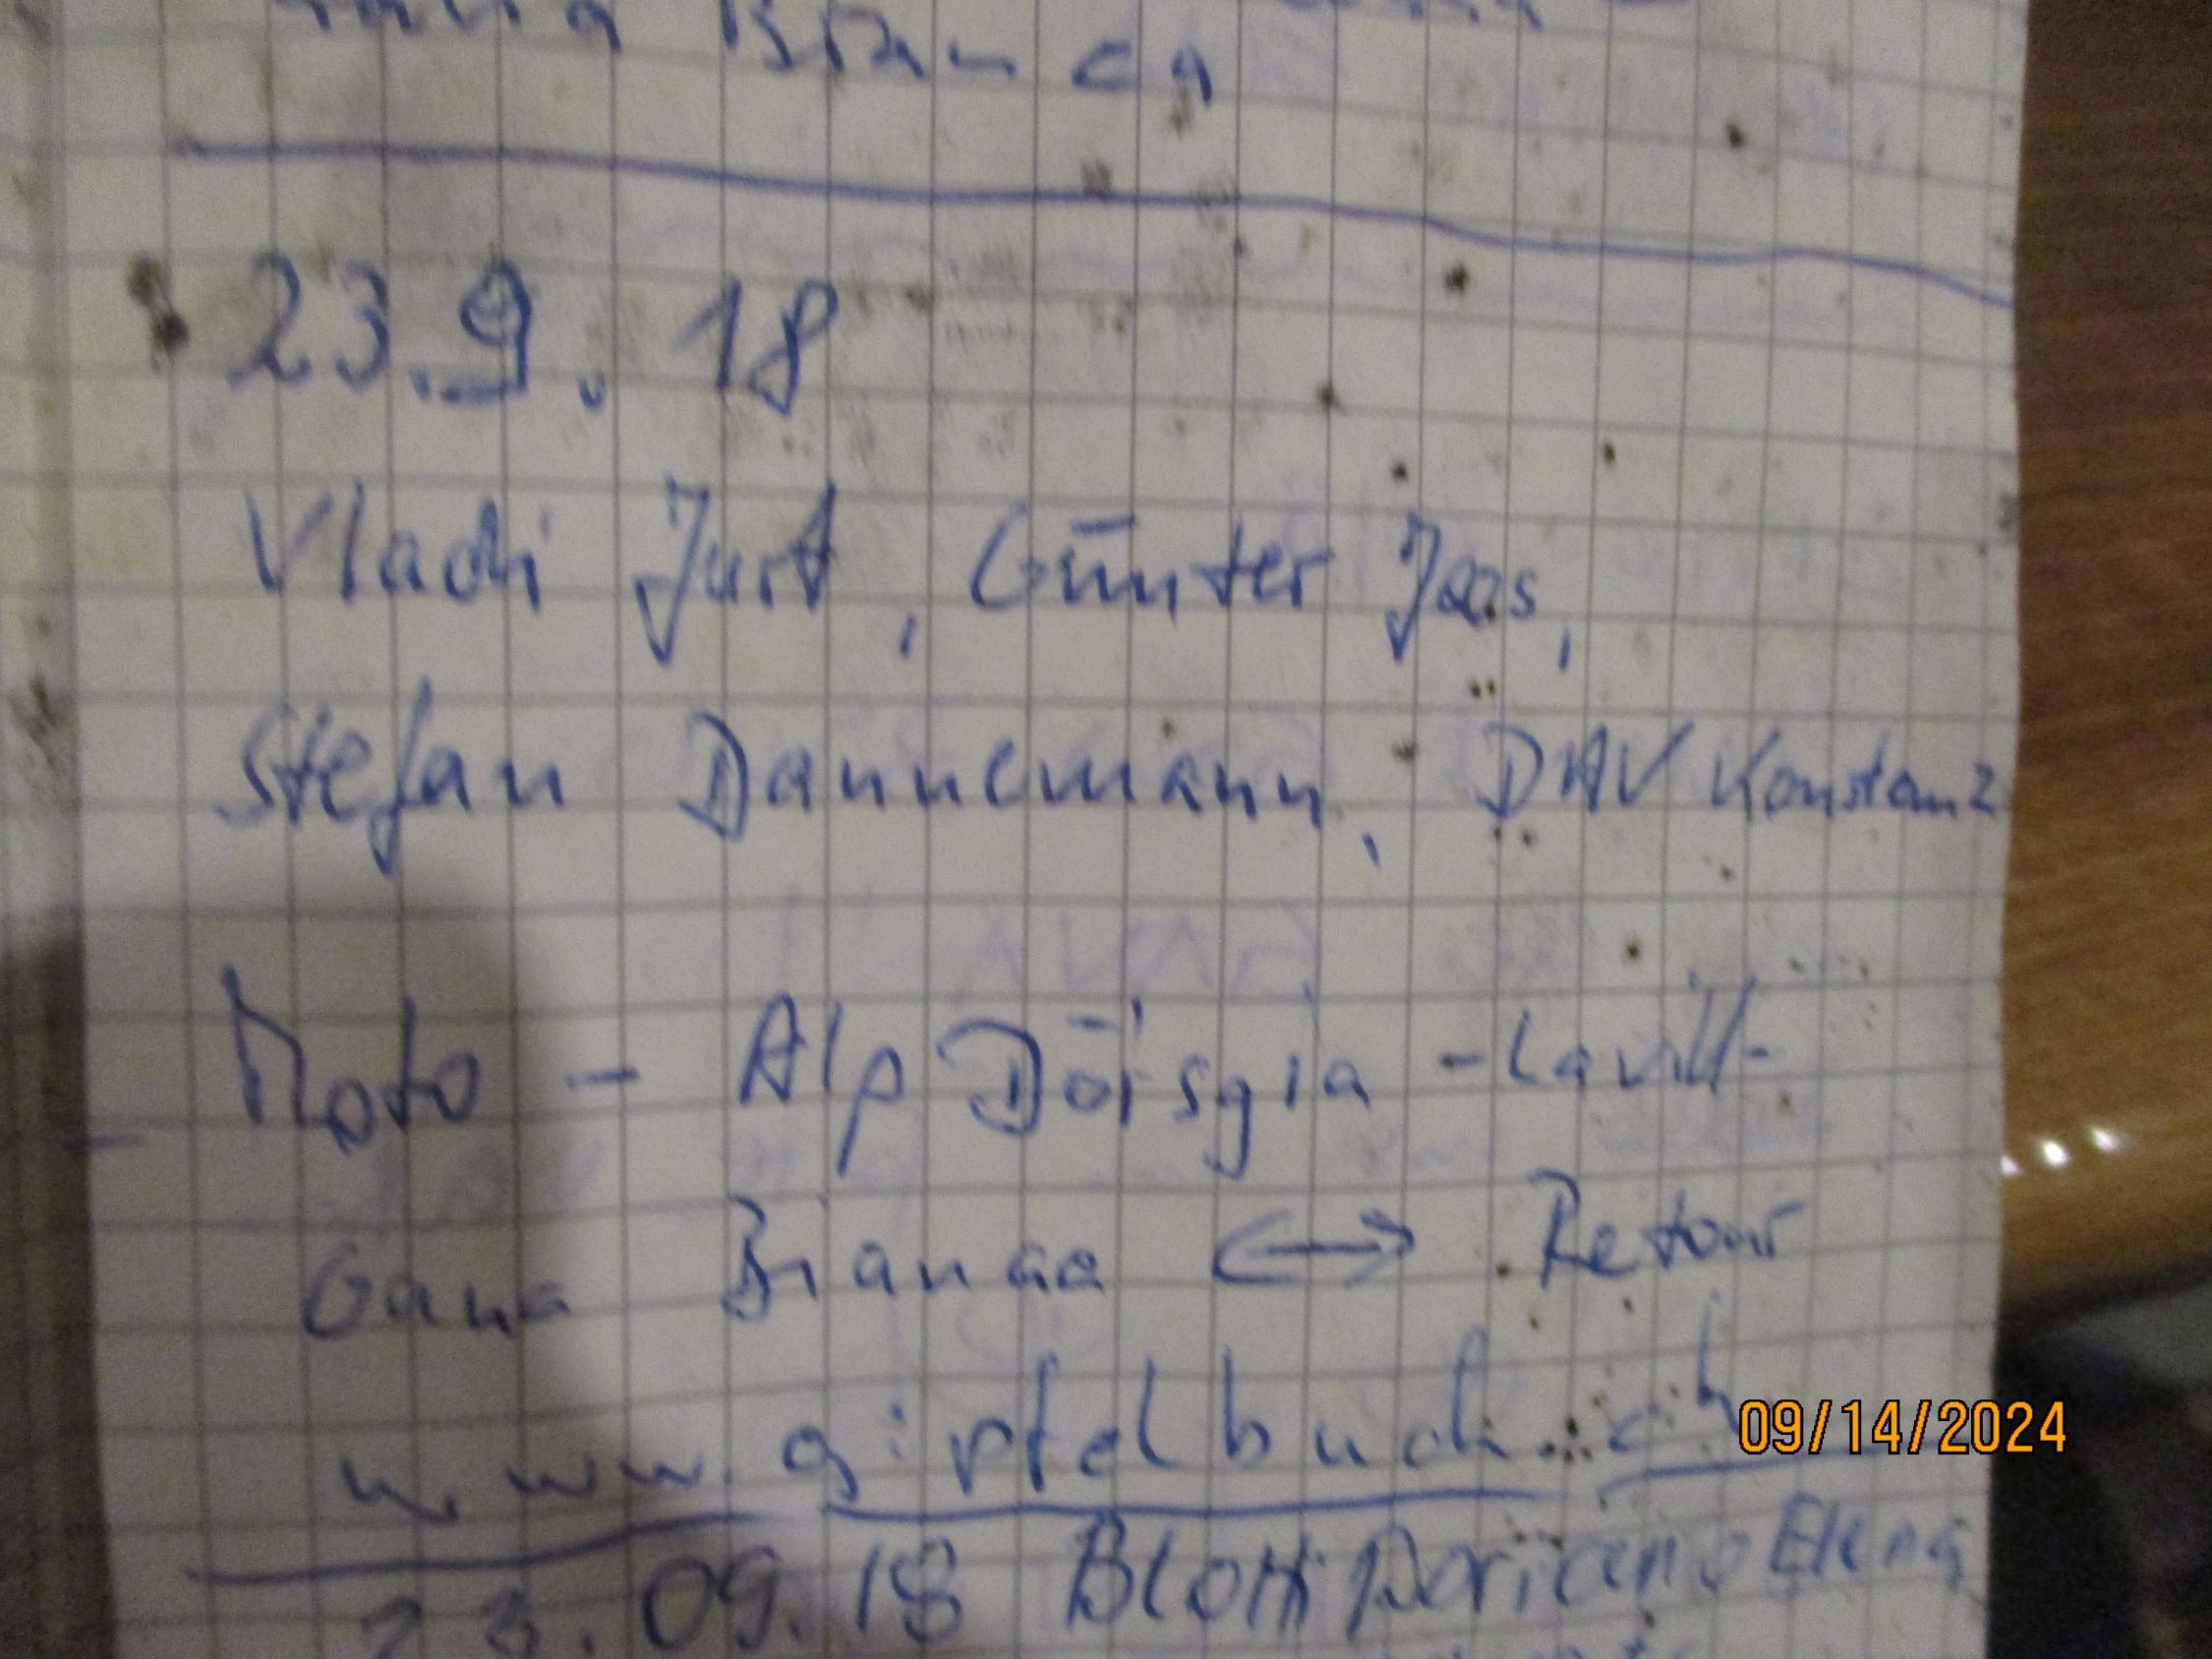 Bianca
23.9.18
Vladi Jurt, Günter Joos,
Stefan Dannemann, DAV Konstanz
Moto - Alp Döisgia - Lavill-
Gana Bianca ⟷ Retour
www.gipfelbuch.ch
09/14/2024
23.09.18 Blotti Doriano Elena